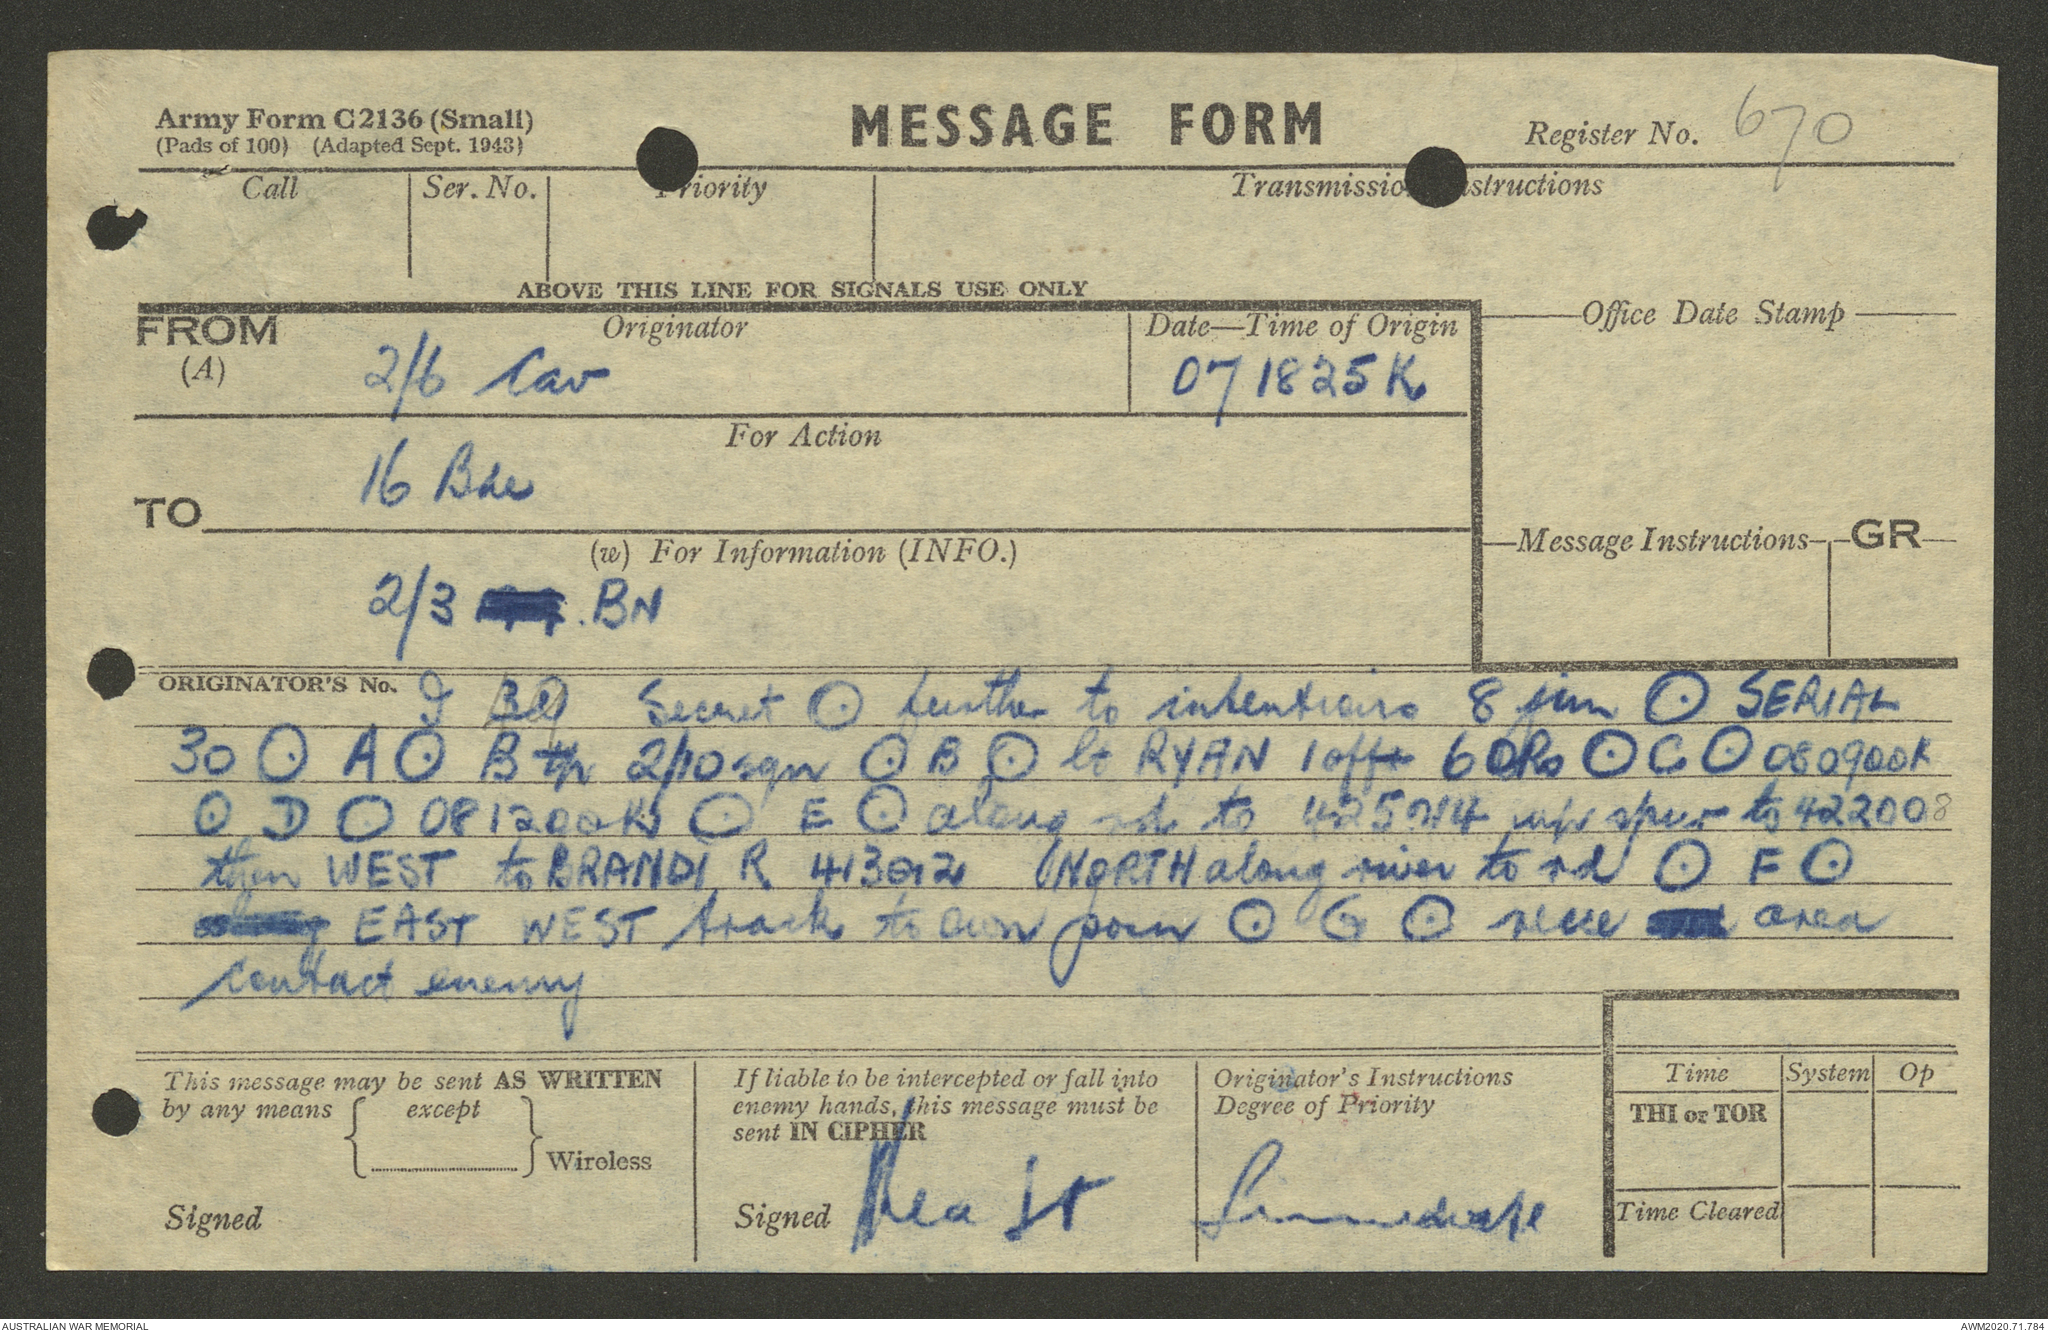 Army Form C2136 (Small)
(Pads of 100) (Adapted Sept. 1943)
MESSAGE FORM
Register No. 670
Call Ser. No. Priority Transmission Instructions
ABOVE THIS LINE FOR SIGNALS USE ONLY
FROM
(A)
Originator
2/6 Cav
Date—Time of Origin
071825K
Office Date Stamp
For Action
16 Bde
TO
(w) For Information (INFO.)
2/3 . BN
Message Instructions GR
ORIGINATOR'S No. Secret ⊙ further to intentions 8 jun ⊙ SERIAL
30 ⊙ A ⊙ B tp 2/10 sqn ⊙ B ⊙ Lt RYAN 1 offr 6 ORs ⊙ C ⊙ 080900K
⊙ D ⊙ 081200K ⊙ E ⊙ along rd to 425014 up spur to 422008
then WEST to BRANDI R 413012 NORTH along river to rd ⊙ F ⊙
EAST WEST track to own posn ⊙ G ⊙ recce area
contact enemy
This message may be sent AS WRITTEN
by any means { except } Wireless
Signed
If liable to be intercepted or fall into
enemy hands, this message must be
sent IN CIPHER
Signed Lt
Originator's Instructions
Degree of Priority
Immediate
Time System Op
THI or TOR
Time Cleared
AUSTRALIAN WAR MEMORIAL
AWM2020.71.784